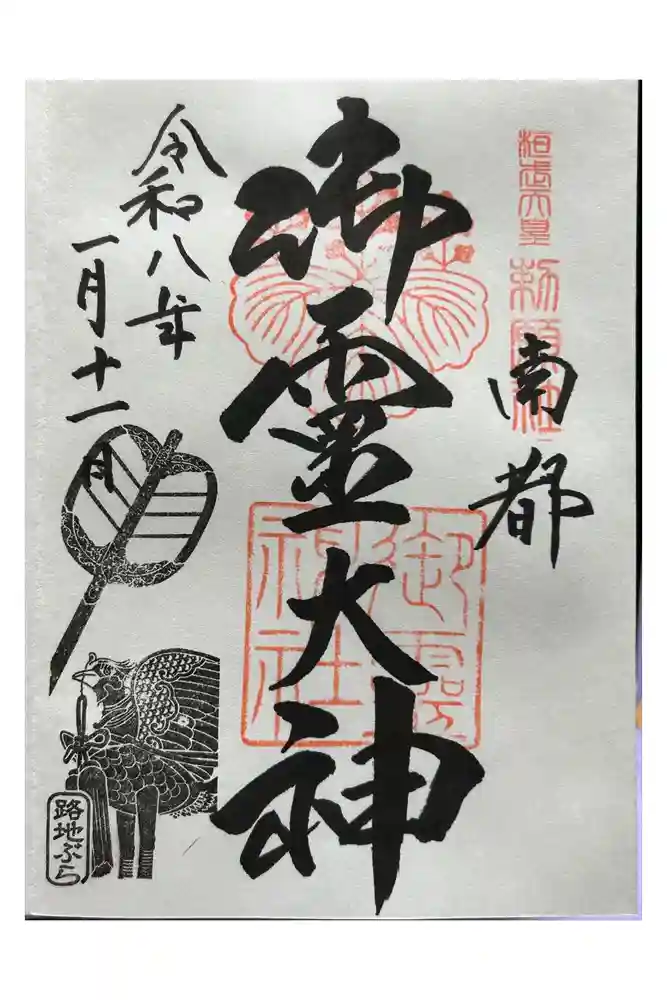 桓武天皇
勅願社
南都
御霊大神
御霊
神社
令和八年
一月十一日
路地ぶら